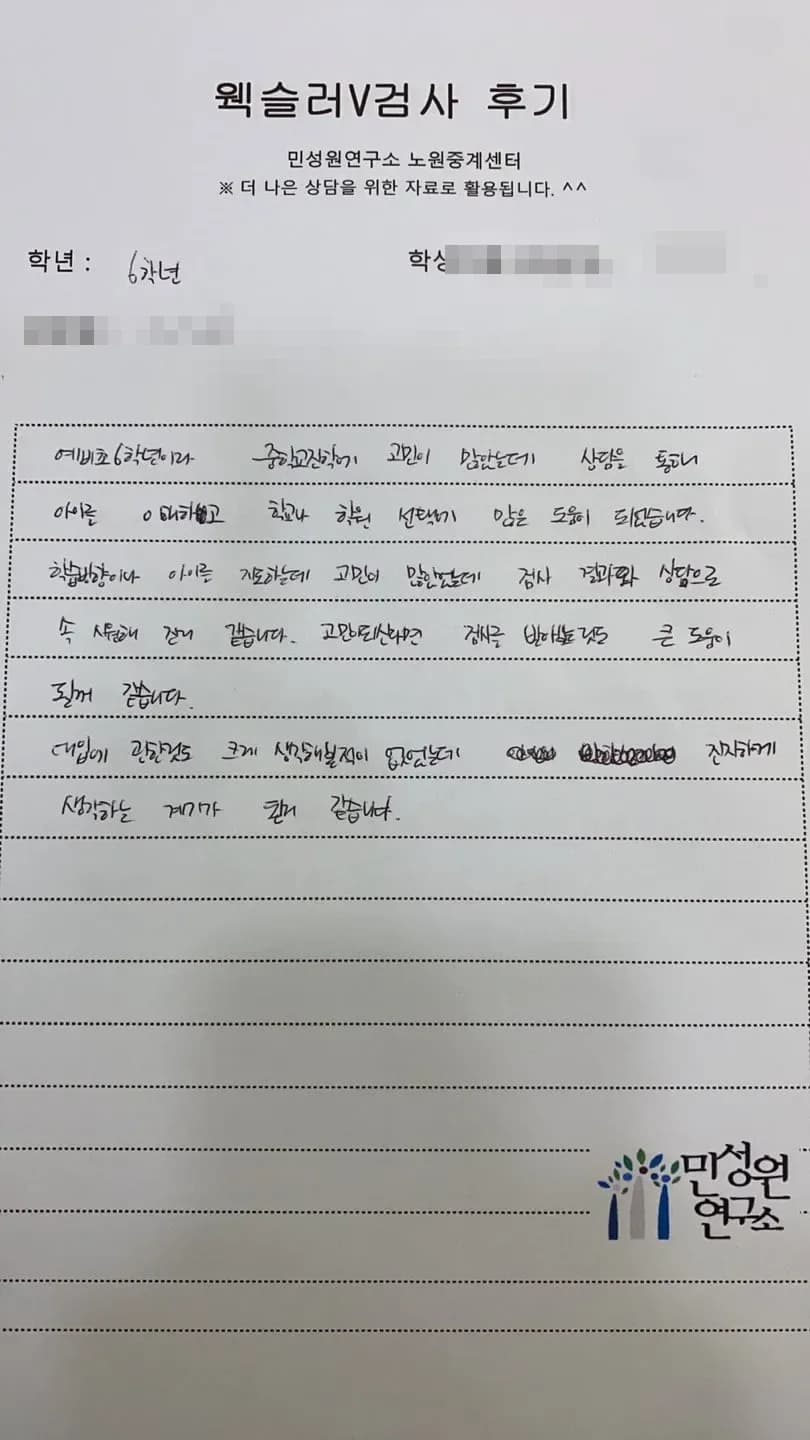 웩슬러V검사 후기
민성원연구소 노원중계센터
※ 더 나은 상담을 위한 자료로 활용됩니다. ^^
학년 : 6학년
예비초6학년이라 중학교진학에 고민이 많았는데 상담을 통하니
아이를 이해하고 학교나 학원 선택에 많은 도움이 되었습니다.
학습방향이나 아이를 지도하는데 고민이 많았는데 검사 결과와 상담으로
속 시원해 진거 같습니다. 고민이되신다면 검사를 받아보는것도 큰 도움이
될꺼 같습니다.
대입에 관한것도 크게 생각해본적이 없었는데 진지하게
생각하는 계기가 된거 같습니다.
민성원
연구소